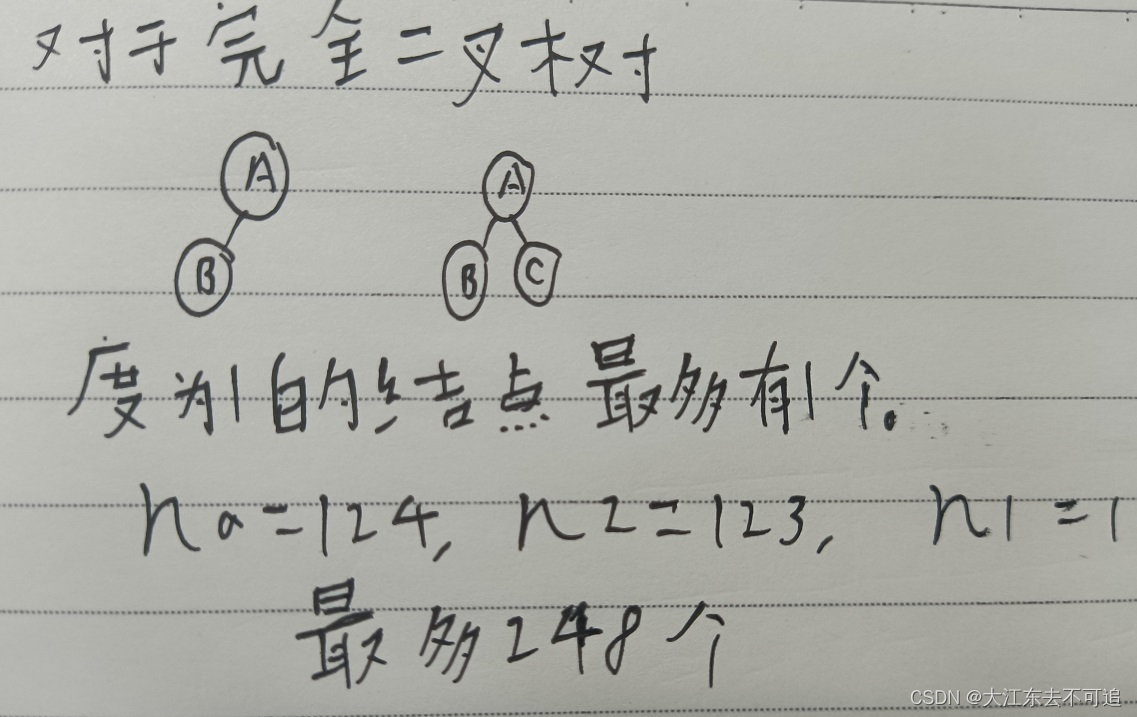 对于完全二叉树
A
B
A
B
C
度为1的结点最多有1个。
n0=124, n2=123, n1=1
最多248个
CSDN @大江东去不可追